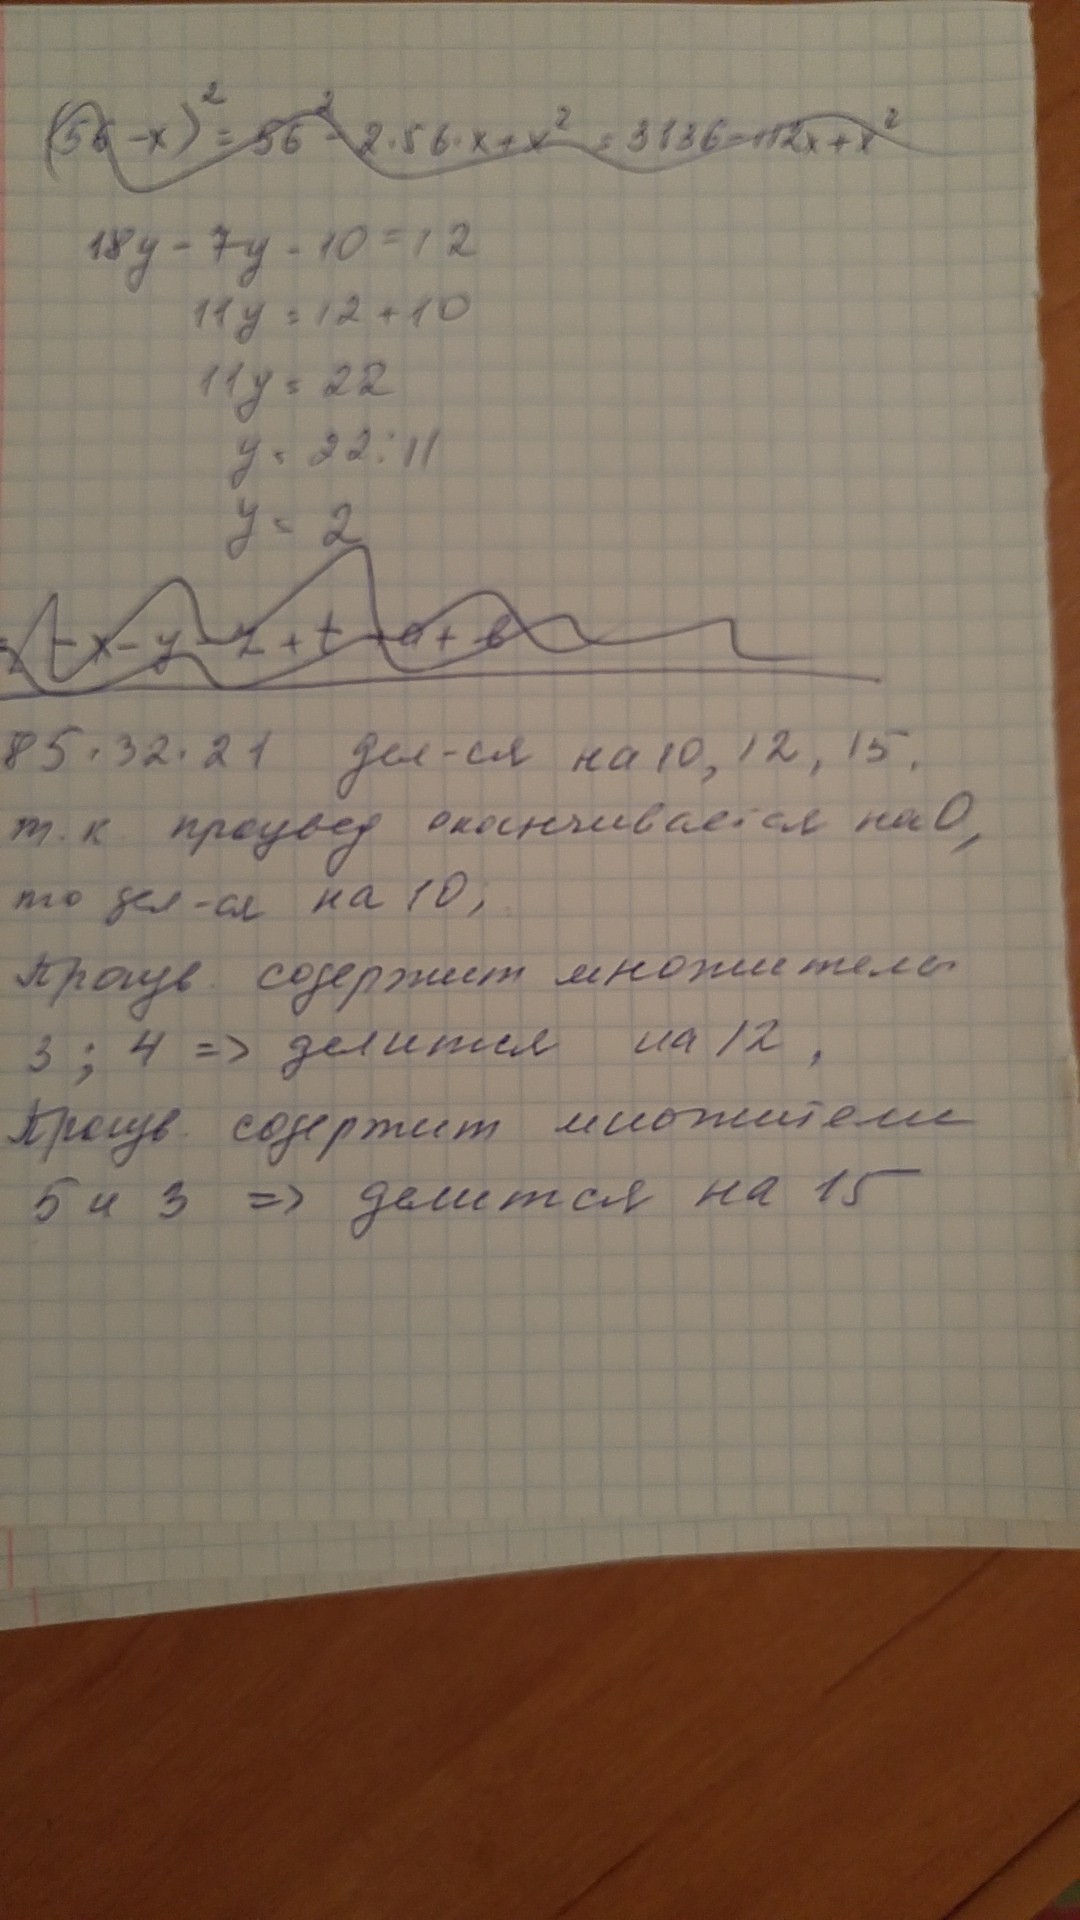 (56-x)² = 56² - 2·56·x+x² = 3136-112x+x²
18y - 7y - 10 = 12
11y = 12 + 10
11y = 22
y = 22:11
y = 2
- x - y - z + t - a + b
85·32·21 дел-ся на 10, 12, 15.
т.к. произвед оканчивается на 0,
то дел-ся на 10;
Произв. содержит множители
3; 4 => делится на 12,
Произв. содержит множители
5 и 3 => делится на 15